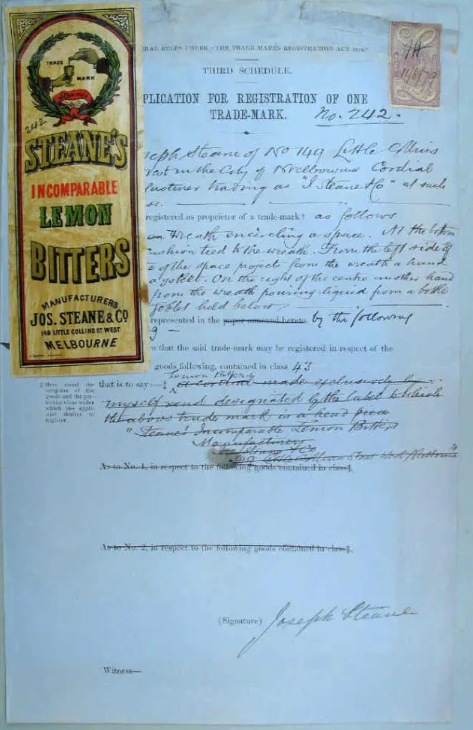 TRADE MARK
Steane's
242
STEANE'S
INCOMPARABLE
LEMON
BITTERS
MANUFACTURERS
JOS. STEANE & CO
149 LITTLE COLLINS ST WEST
MELBOURNE
RULES UNDER "THE TRADE MARKS REGISTRATION ACT
THIRD SCHEDULE.
PLICATION FOR REGISTRATION OF ONE
TRADE-MARK. No. 242.
Steane of No 149 Little Collins
in the City of Melbourne Cordial
trading as "J Steane & Co" at such
registered as proprietor of a trade-mark† as follows
Wreath encircling a space. At the bottom
tied to the wreath. From the left side of
of the space project from the wreath a hand
a goblet. On the right of the centre another hand
from the wreath pouring liquid from a bottle
goblet held below
represented in the paper annexed hereto. by the following
that the said trade-mark may be registered in respect of the
goods following, contained in class 43
Lemon Bitters
that is to say:— a cordial made exclusively by
myself and designated by the label to which
the above trade mark is a head piece
"Steane's Incomparable Lemon Bitters
Manufacturers
149 Little Collins Street West Melbourne"
As to No. 1, in respect to the following goods contained in class‡.
As to No. 2, in respect to the following goods contained in class‡.
(Signature) Joseph Steane
Witness—